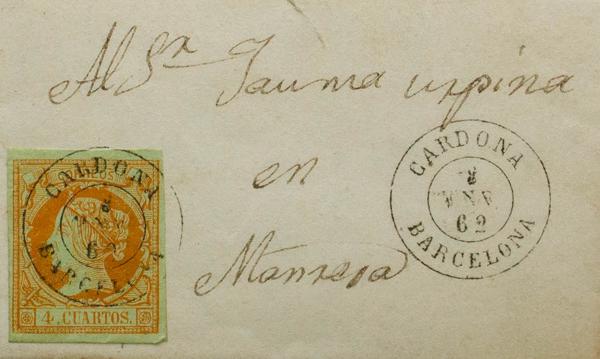 Al Sr Jauma urpina
en
Manresa
CARDONA
8
ENE
62
BARCELONA
CARDONA
8
62
BARCELONA
4 CUARTOS.